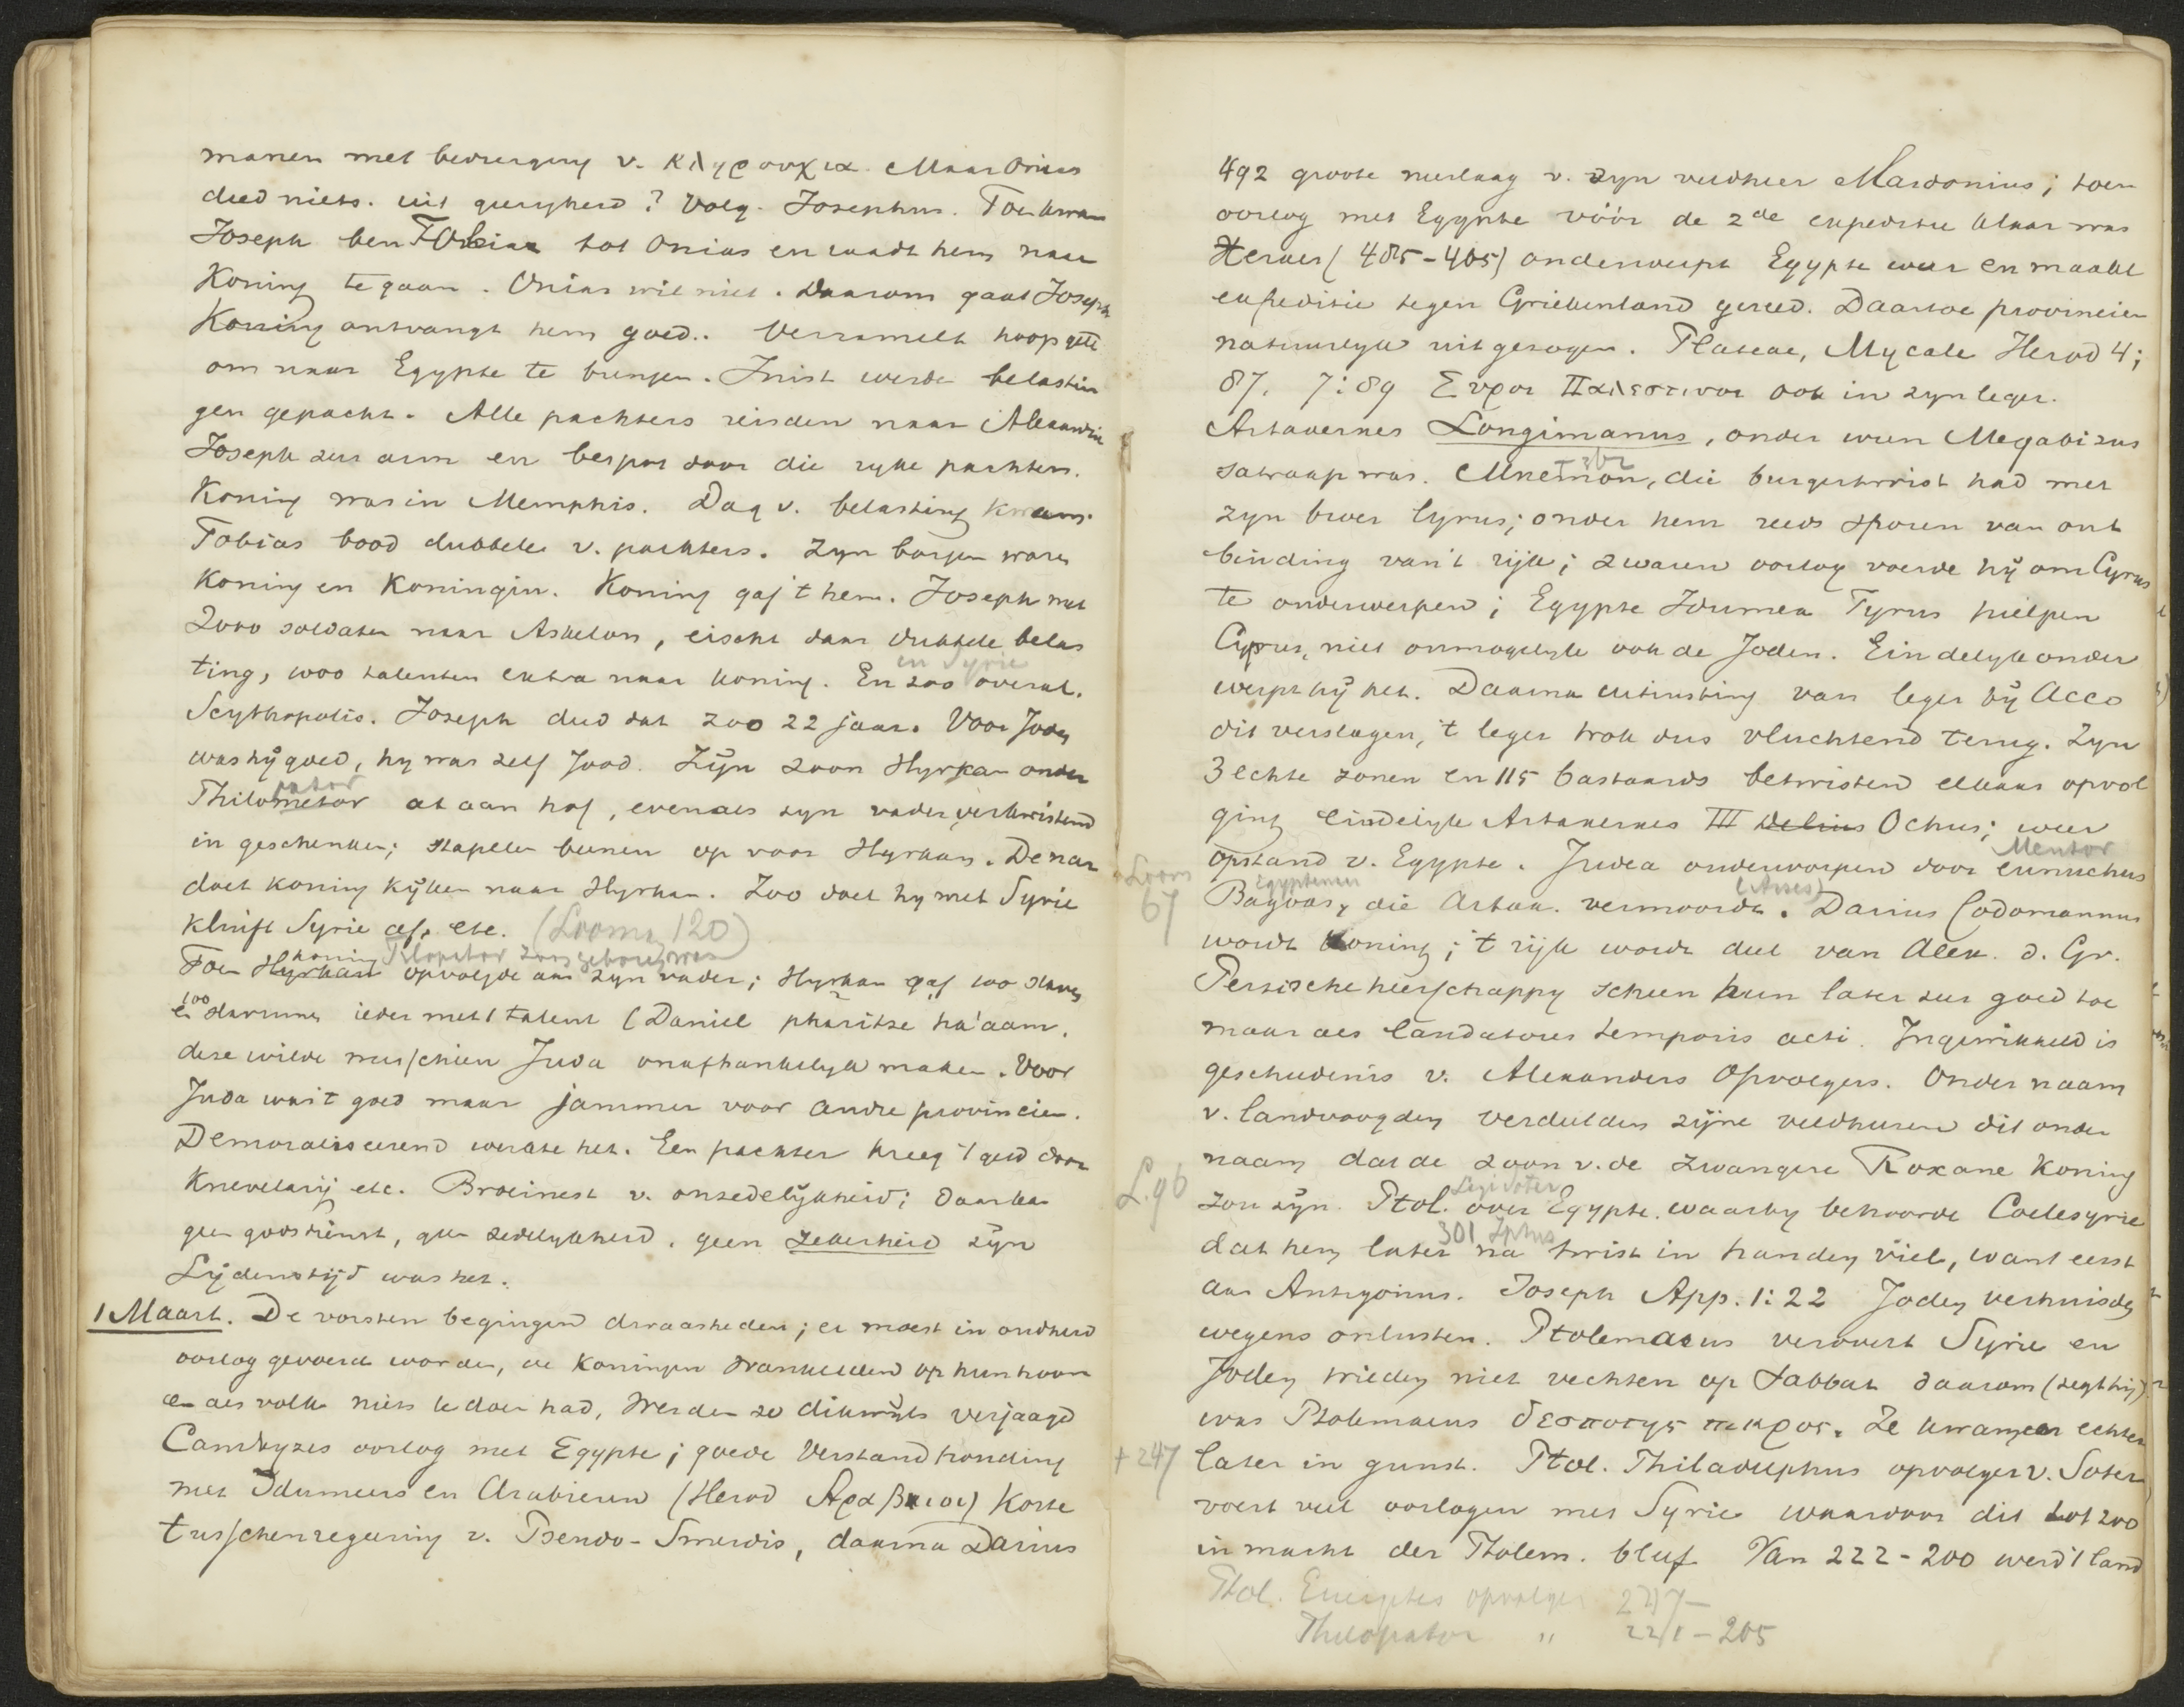 manen met bedreiging v. κληρουχια. Maar Onias
deed niets. uit gierigheid? Volg. Josephus. Toen kwam
Joseph ben Tobias tot Onias en raadt hem naar
Koning te gaan. Onias wil niet. Daarom gaat Joseph
Koning ontvangt hem goed.. Verzamelt hoop geld
om naar Egypte te brengen. Juist werden belastin
gen gepacht. Alle pachters reisden naar Alexandrie
Joseph zeer arm en bespot door die ryke pachters.
Koning was in Memphis. Dag v. belasting kwam.
Tobias bood dubbele v. pachters. Zyn borgen waren
Koning en Koningin. Koning gaf 't hem. Joseph met
2000 soldaten naar Askelon, eischt daar dubbele belas
ting, 1000 talenten extra naar koning. En zoo overal.
in Syrie
Scythopolis. Joseph deed dat zoo 22 jaar. Voor Joden
was hÿ goed, hy was zelf Jood. Zÿn zoon Hyrkan onder
pator
Philometor at aan hof, evenals zyn vader verkwistend
in geschenken; stapelen beenen op voor Hyrkan. De nar
doet koning kÿken naar Hyrkan. Zoo doet hy met Syrie
kluift Syrie af, etc. (Looman 120)
koning Filopator zoon geboren was
Toen Hyrkan opvolgde aan zyn vader; Hyrkan gaf 100 slaven
en 100 slavinnen ieder met 1 talent (Daniel pharitze ha'aam.
deze wilde misschien Juda onafhankelyk maken. Voor
Juda was 't goed maar jammer voor andre provincien.
Demoraliseerend werkte het. Een pachter kreeg 't geld door
Knevelarij etc. Broeinest v. onzedelÿkheid; daar kan
geen godsdienst, geen zedelykheid, geen zekerheid zÿn
Lÿdenstÿd was het.
1 Maart. De vorsten begingen dwaasheden; er moest in oudheid
oorlog gevoerd worden, de Koningen wankelden op hun troon
en als volk niets te doen had, werden ze dikwÿls verjaagd
Cambyzes oorlog met Egypte; goede Verstandhouding
met Idumeers en Arabieren (Herod Αραβιοι) Korte
tusschenregeering v. Pseudo-Smerdis, daarna Darius
492 groote neerlaag v. zyn veldheer Mardonius; toen
oorlog met Egypte vóór de 2de expeditie klaar was
Xerxes (485-465) onderwerpt Egypte weer en maakt
expeditie tegen Griekenland gereed. Daartoe provincien
natuurlyk uitgezogen. Plateae, Mycale Herod 4;
87. 7:89 Συροι Παλεστινοι ook in zyn leger.
Artaxerxes Longimanus, onder wien Megabizus
satraap was. Mnemon, die burgertwist had met
zyn broer Cyrus; onder hem reeds sporen van ont
binding van 't rijk; zwaren oorlog voerde hÿ om Cyrus
te onderwerpen; Egypte Idumea Tyrus hielpen
Cyprus, niet onmogelyk ook de Joden. Eindelyk onder
werpt hÿ het. Daarna uitrusting van leger bÿ Acco
dit verslagen, 't leger trok dus vluchtend terug. Zyn
3 echte zonen en 115 bastaards betwisten elkaar opvol
ging eindelyk Artaxerxes III Ochus; weer
opstand v. Egypte. Judea onderworpen door eunuchus
Mentor
Looman 67
Egyptenaar
(Arses)
Bagoas, die Artax. vermoordt. Darius Codomannus
wordt koning; 't rijk wordt deel van Alex. d. Gr.
Perzische heerschappy scheen hun later zeer goed toe
maar als laudatores temporis acti. Ingewikkeld is
geschiedenis v. Alexanders Opvolgers. Onder naam
v. landvoogden verdeelden zijne veldheeren dit onder
naam dat de zoon v. de zwangere Roxane Koning
L. 96
zou zÿn. Ptol. over Egypte. waarby behoorde Coelesyrie
301 Iphus
dat hem later na twist in handen viel, want eerst
aan Antigonus. Joseph App. 1:22 Joden verhuisden
wegens onlusten. Ptolemaeus verovert Syrie en
Joden wilden niet vechten op Sabbat daarom (zegt hij)
was Ptolemaeus δεσποτης πικρος. Ze kwamen echter
+ 247
later in gunst. Ptol. Philadelphus opvolger v. Soter
voert veel oorlogen met Syrie waardoor dit tot 200
in macht der Ptolem. bleef. Van 222-200 werd 't land
Ptol. Euergetes opvolger 247-
Philopator " 221-205